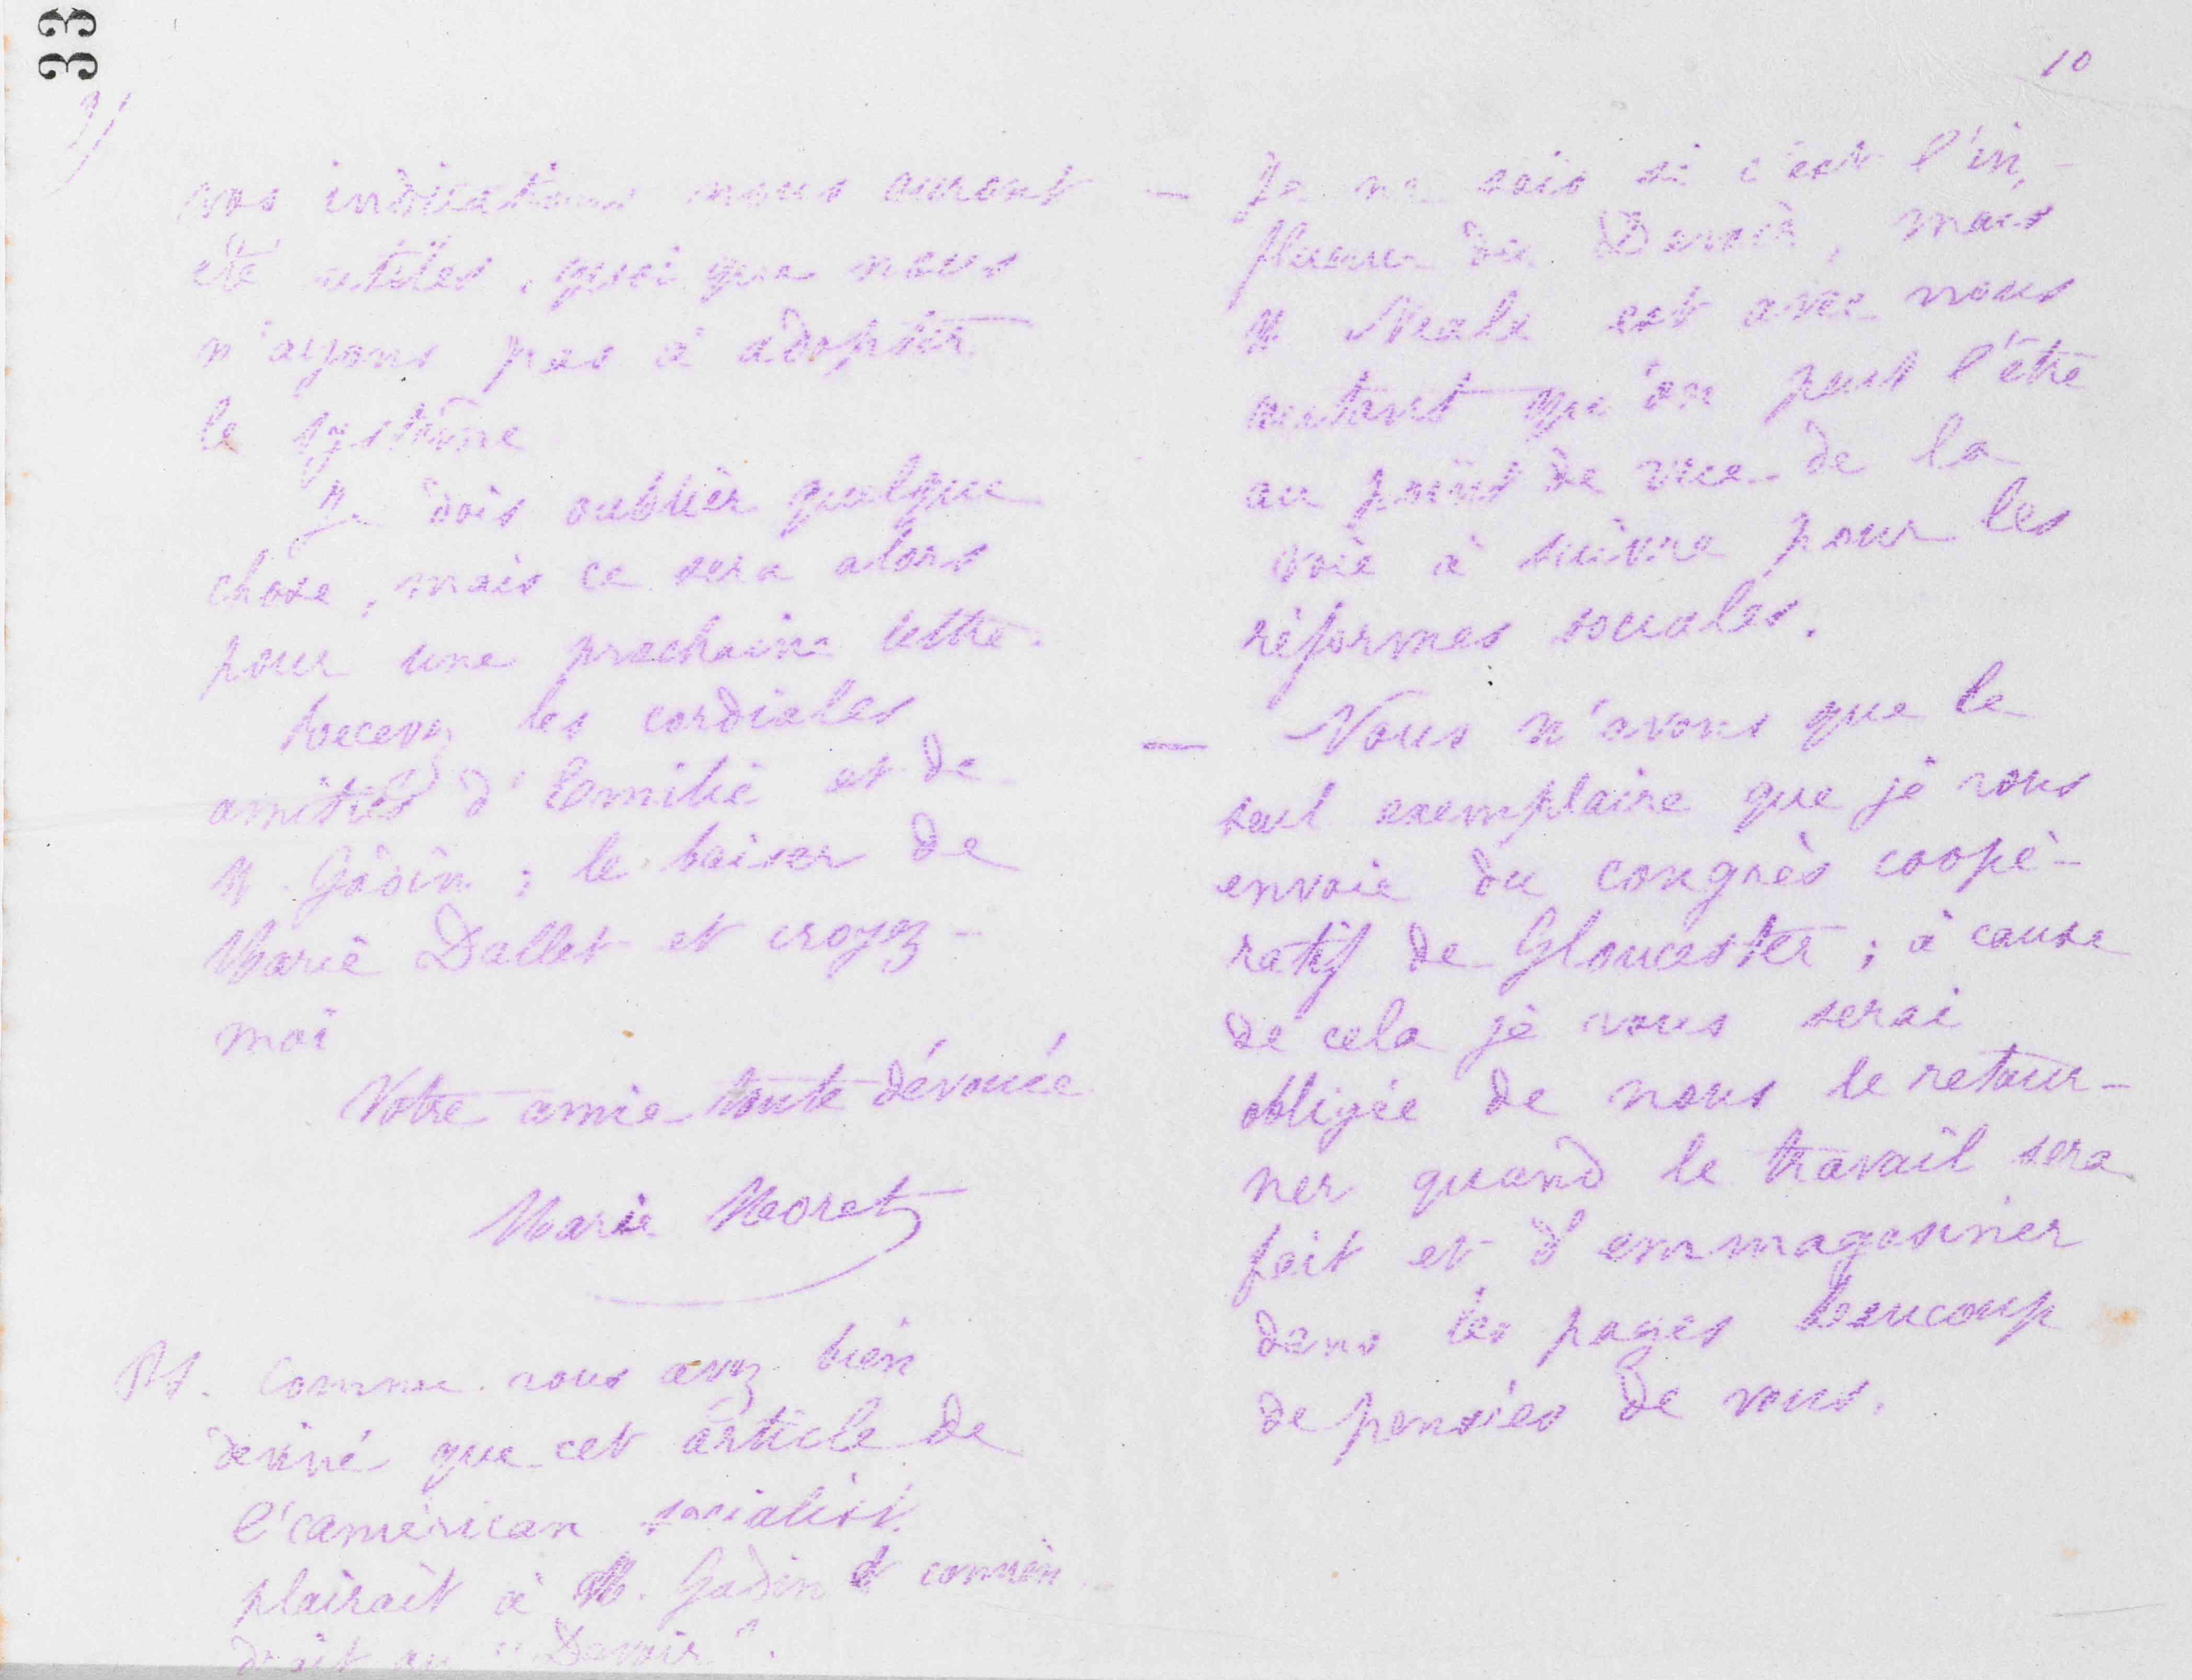 33
9)
vos indications nous auront
été utiles, quoi que nous
n'ayons pas à adopter
le système
Je dois oublier quelque
chose, mais ce sera alors
pour une prochaine lettre.
Recevez les cordiales
amitiés d'Emilie et de
M. Godin ; le baiser de
Marie Dallet et croyez-
moi
Votre amie toute dévouée
Marie Moret
PS. Comme vous avez bien
deviné que cet article de
l'american socialist
plairait à M. Godin & convien
drait au "Devoir".
10
— Je ne sais si c'est l'in-
fluence du Devoir, mais
M Neale est avec nous
autant qu'on peut l'être
au point de vue de la
voie à suivre pour les
réformes sociales.
— Nous n'avons que le
seul exemplaire que je vous
envoie du congrès coopé-
ratif de Gloucester ; à cause
de cela je vous serai
obligée de nous le retour-
ner quand le travail sera
fait et d'emmagasiner
dans les pages beaucoup
de pensées de vous.